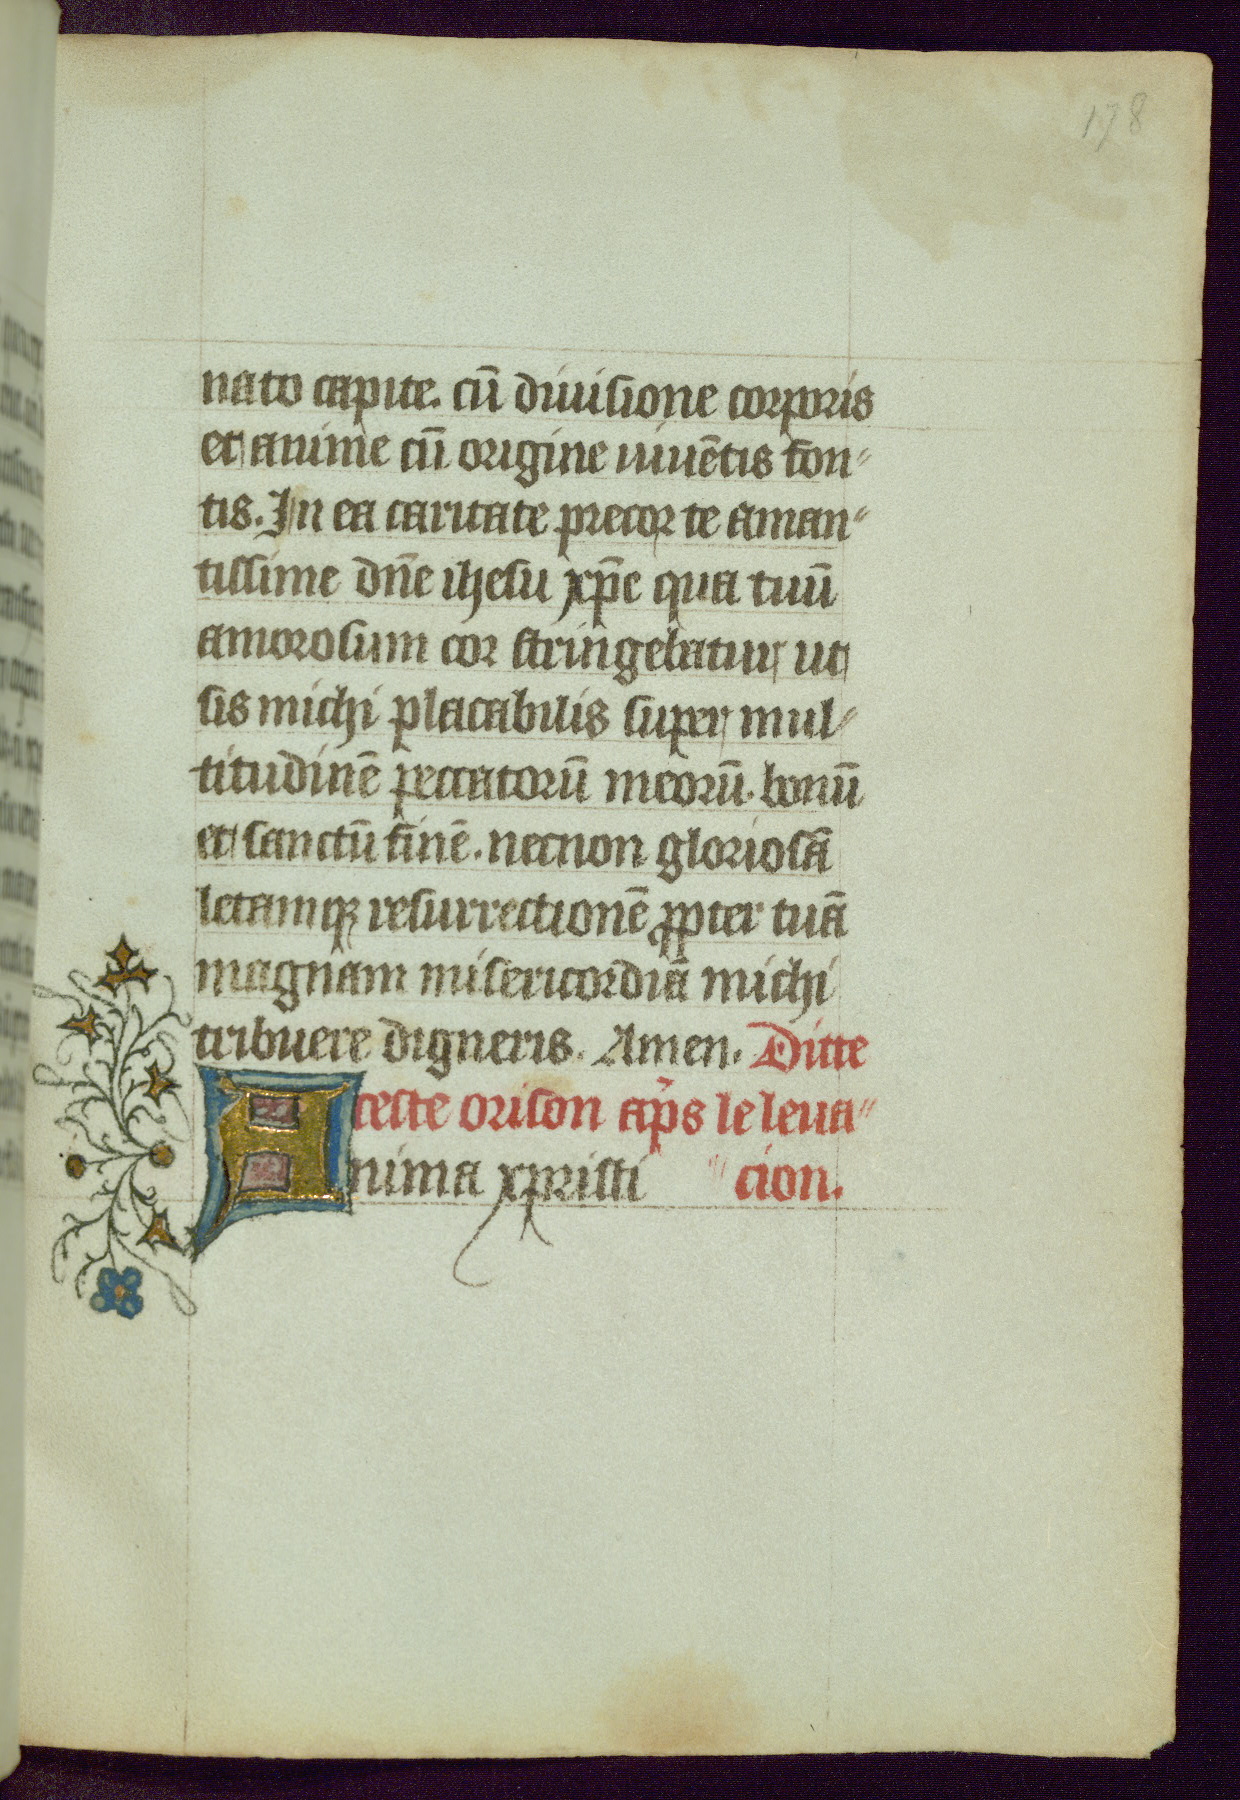 178
nato capite. cū diuisione corporis
et anime cū origine uiuētis fon-
tis. In ea caritate precor te aman-
tissime dn̄e ihesu xp̄e qua tuū
amorosum cor stringebatur ut
sis michi placabilis super mul-
titudinē peccatorū meorū. bonū
et sanctū finē. necnon gloriosā
letamqꝫ resurrectionē ꝓpter tuā
magnam misericordiā michi
tribuere digneris. Amen. Ditte
ceste orison ap̄s le leua-
Anima xpristi cion.